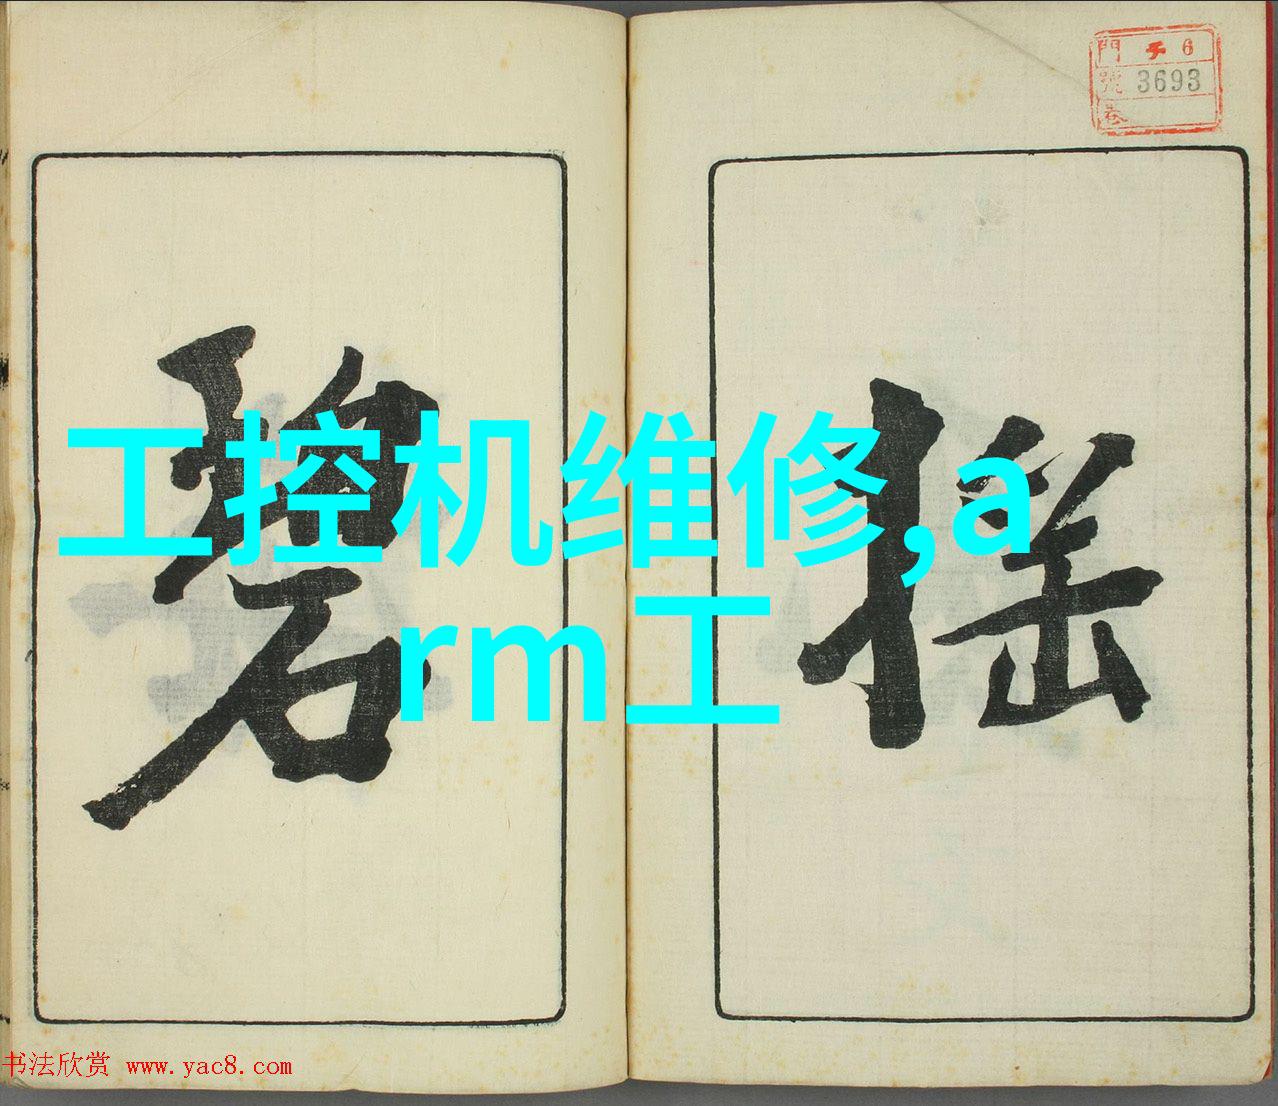 門 子 6
號 3693
卷
搖
碧
工控机维修,a
rm工
书法欣赏 www.yac8.com